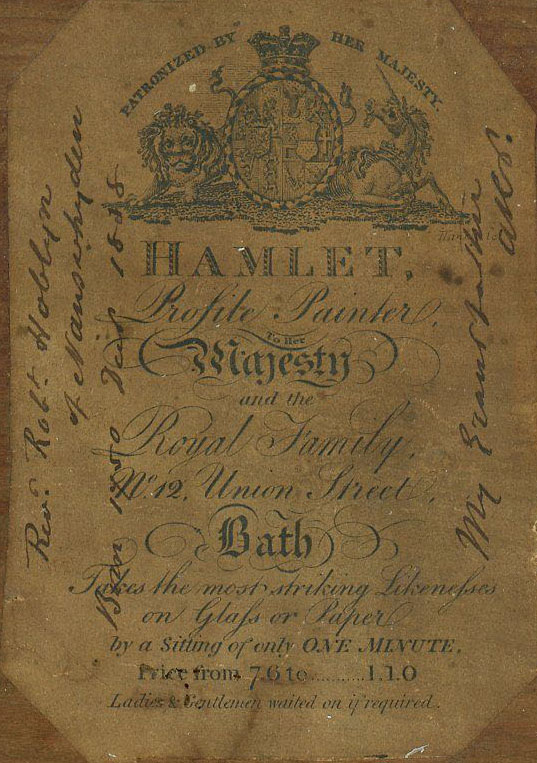 PATRONIZED BY HER MAJESTY.
HAMLET,
Profile Painter,
To Her
Majesty
and the
Royal Family,
No. 12, Union Street,
Bath
Takes the most striking Likenesses
on Glass or Paper
by a Sitting of only ONE MINUTE.
Price from 7.6 to..........1.1.0
Ladies & Gentlemen waited on if required.
Revd. Robt. Hoblyn
of Nanswhyden
Born Died
My Grandfather